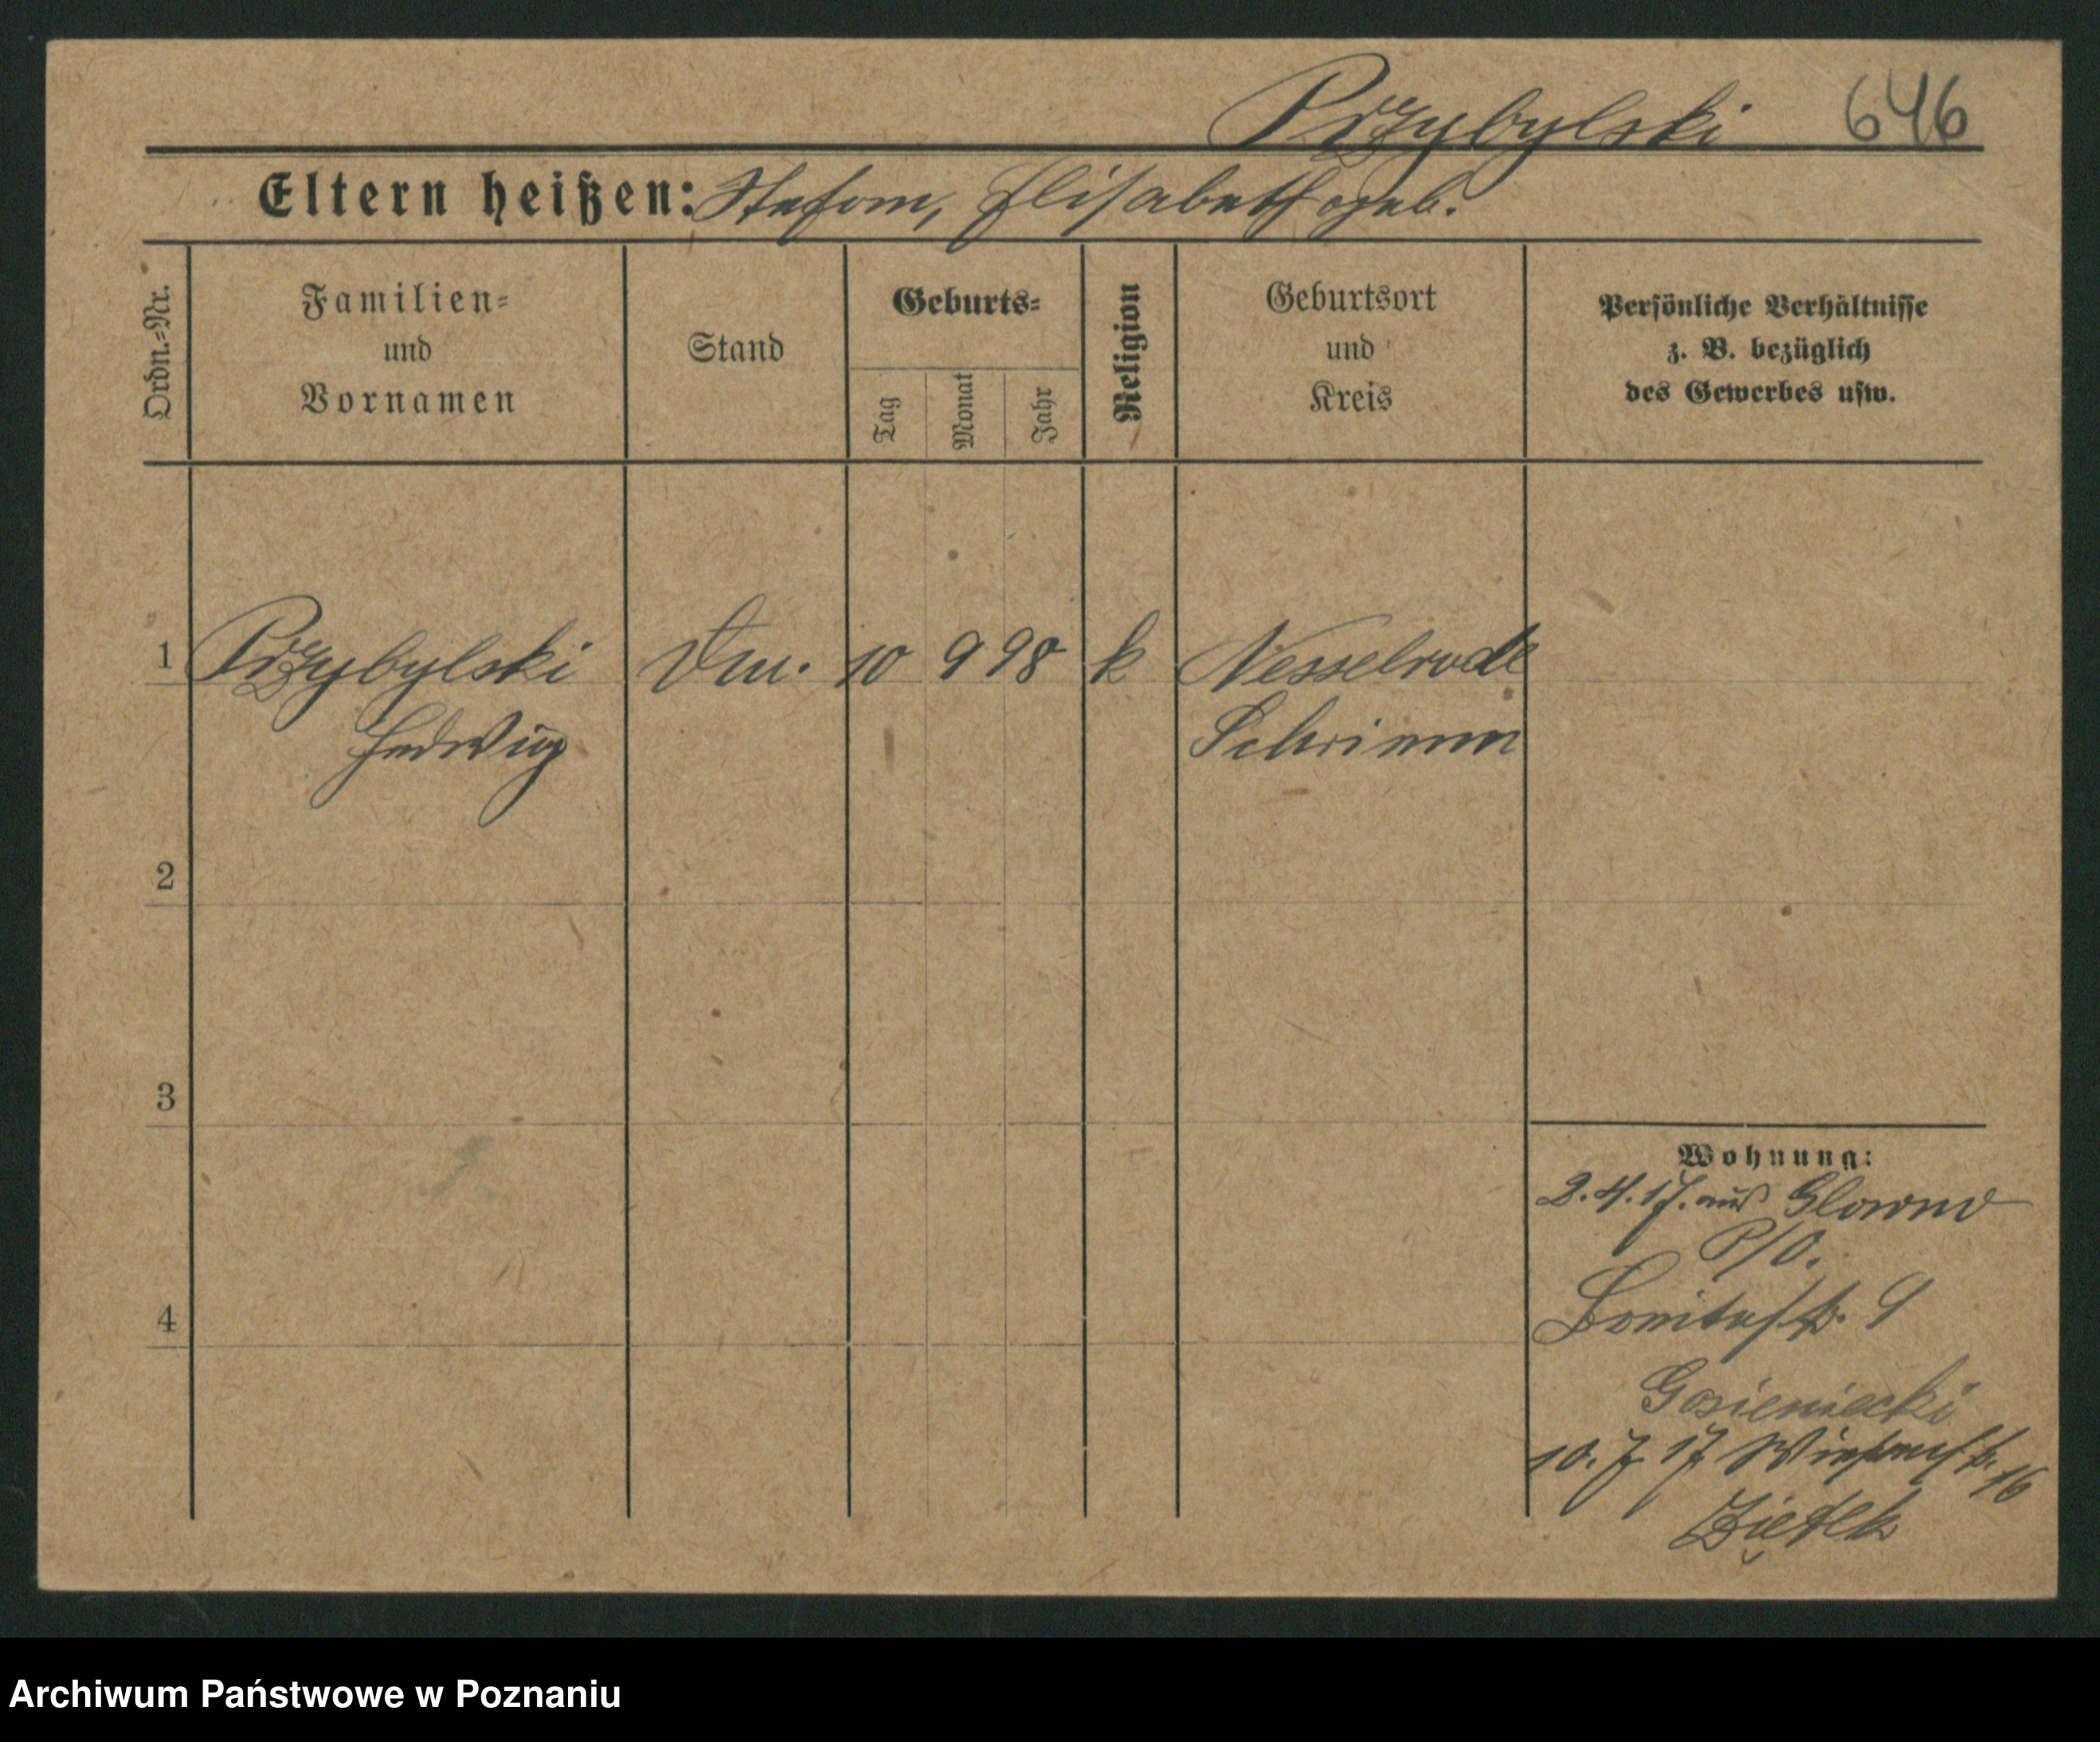 Przybylski 646
Eltern heißen: Stefan, Elisabeth geb.
Ordn.=Nr.
Familien=
und
Vornamen
Stand
Geburts=
Tag
Monat
Jahr
Religion
Geburtsort
und
Kreis
Persönliche Verhältnisse
z. B. bezüglich
des Gewerbes usw.
1 Przybylski 10 9 98 k Nesselrode
Hedwig Schrimm
2
3
4
Wohnung:
2.4.17. aus Glowno
P/O.
9
Gosieniecki
10.7.17 Wiesenstr. 16
Ziętek
Archiwum Państwowe w Poznaniu